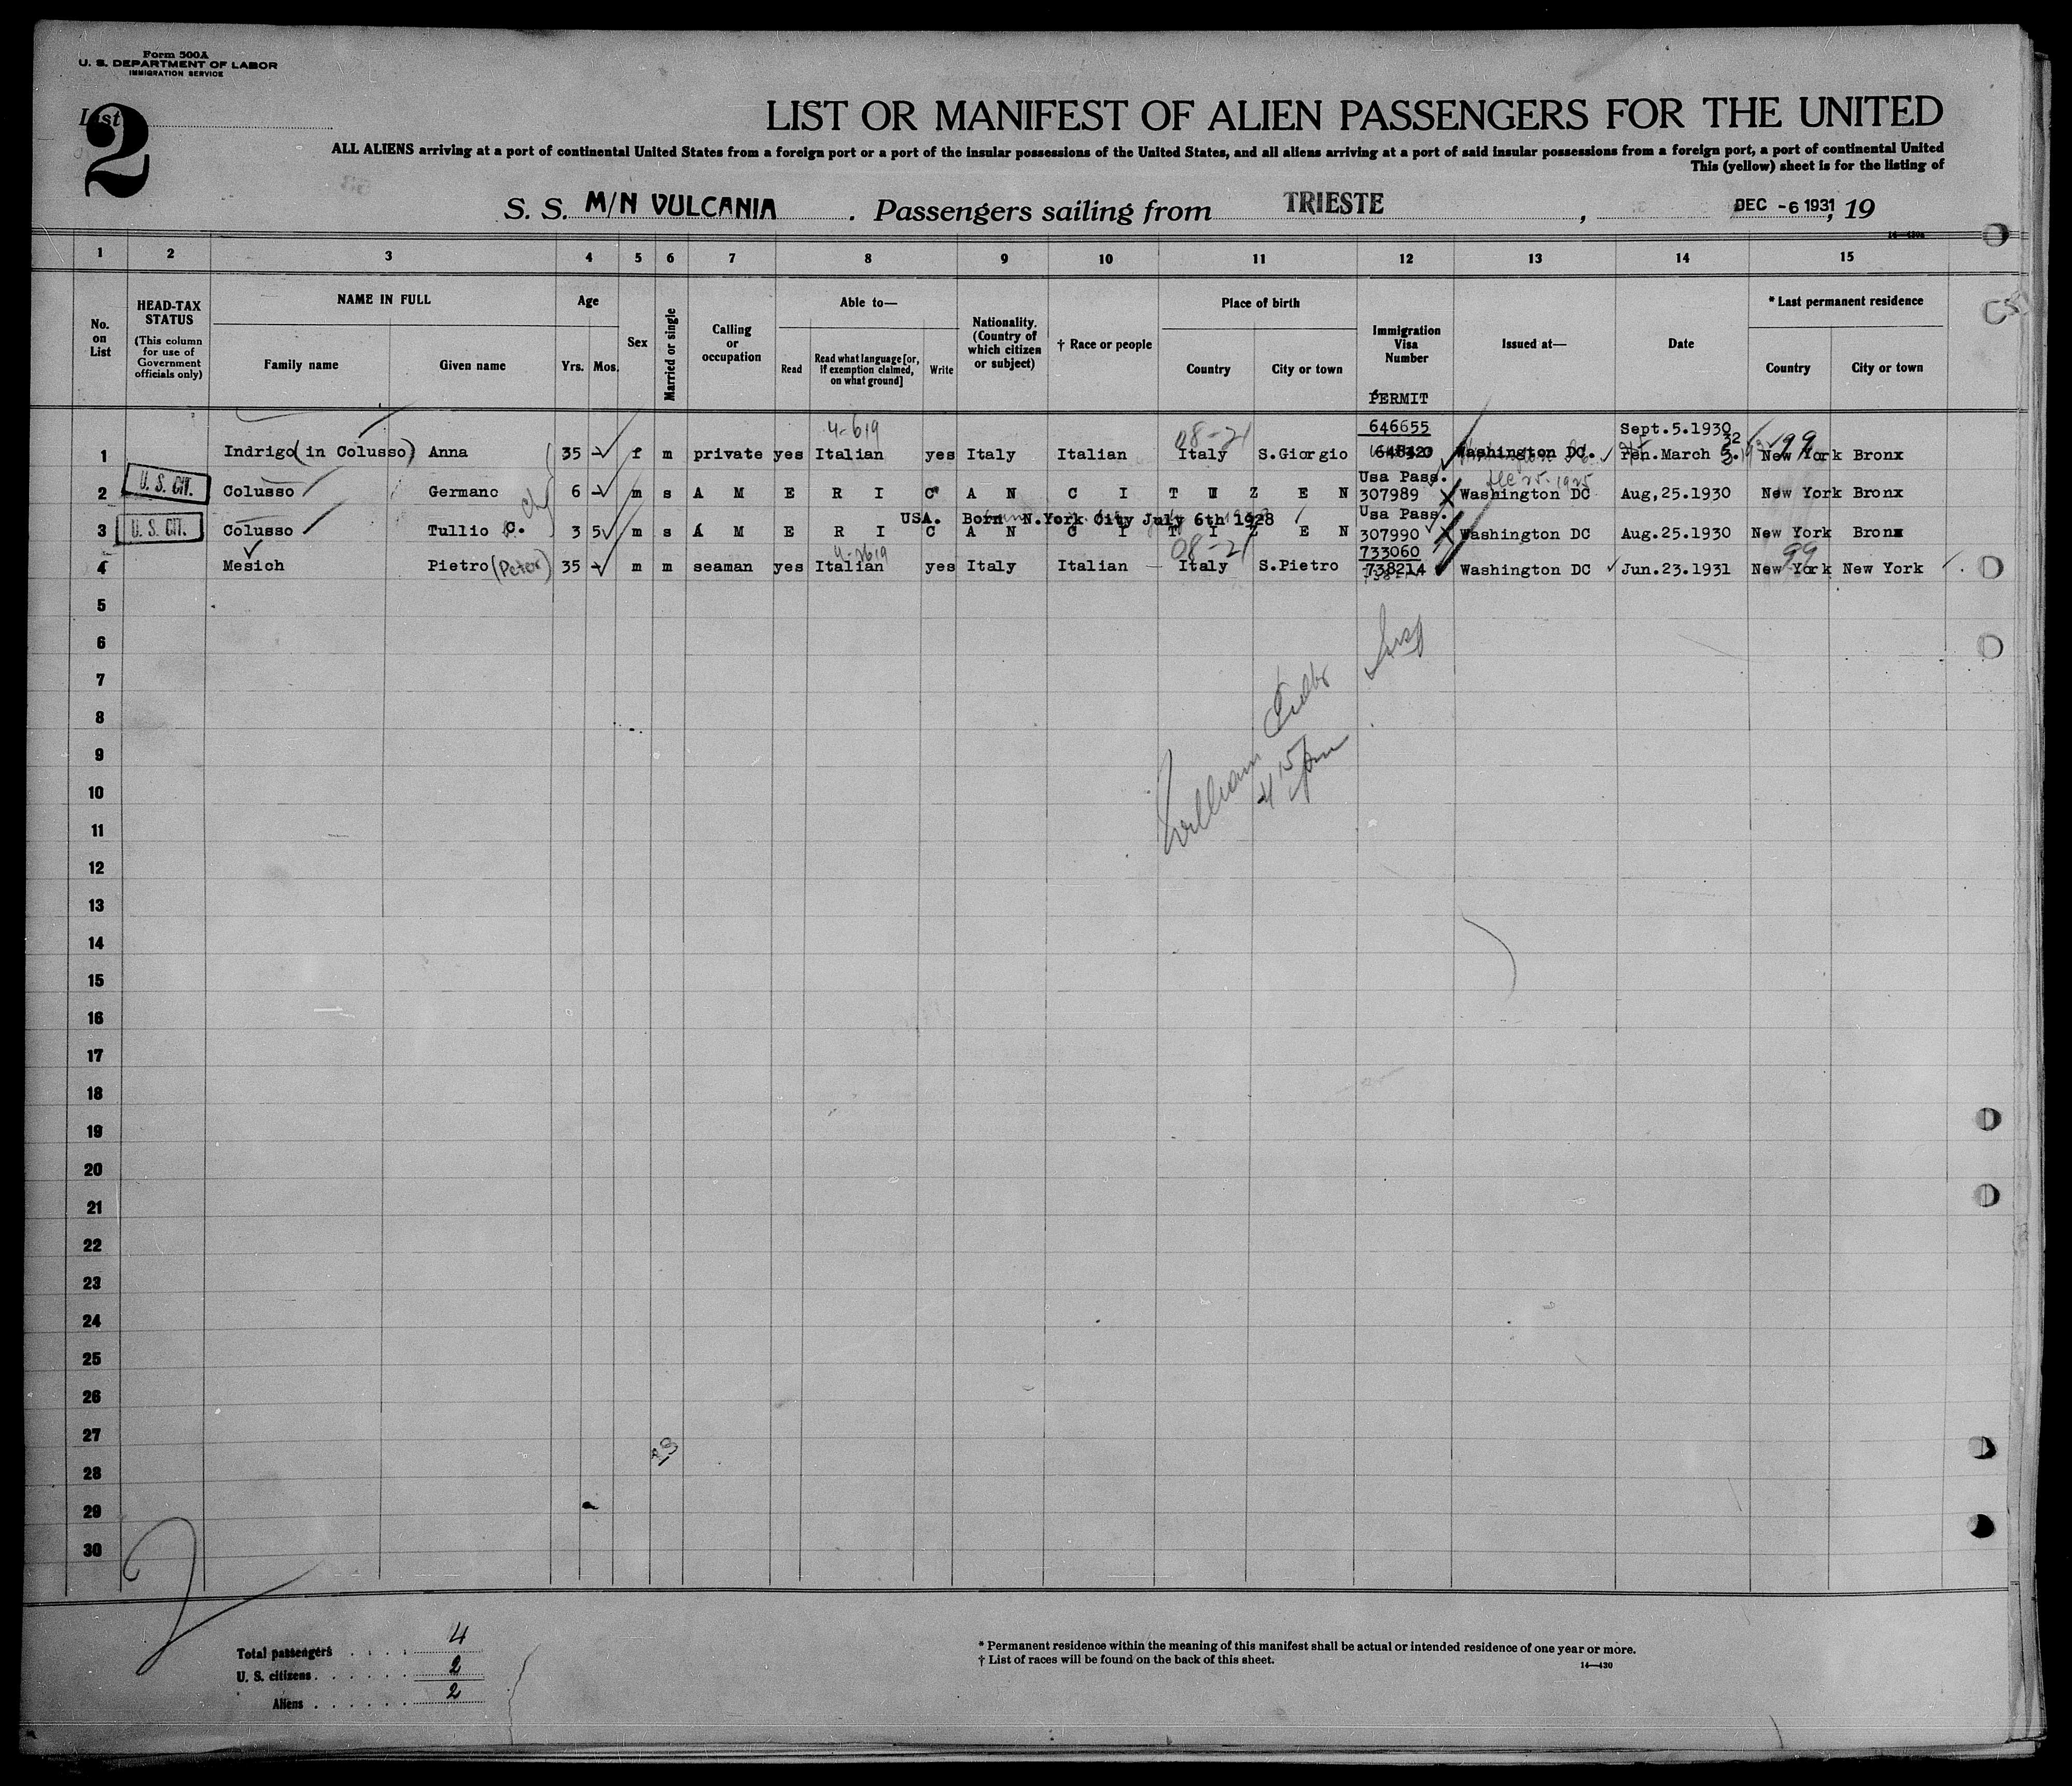 Form 500A
U. S. DEPARTMENT OF LABOR
IMMIGRATION SERVICE
List
2
LIST OR MANIFEST OF ALIEN PASSENGERS FOR THE UNITED
ALL ALIENS arriving at a port of continental United States from a foreign port or a port of the insular possessions of the United States, and all aliens arriving at a port of said insular possessions from a foreign port, a port of continental United
This (yellow) sheet is for the listing of
S. S. M/N VULCANIA . Passengers sailing from TRIESTE , DEC -6 1931, 19
1 2 3 4 5 6 7 8 9 10 11 12 13 14 15
No. on List
HEAD-TAX STATUS
(This column for use of Government officials only)
NAME IN FULL
Family name Given name
Age
Yrs. Mos.
Sex
Married or single
Calling or occupation
Able to—
Read Read what language [or, if exemption claimed, on what ground] Write
Nationality. (Country of which citizen or subject)
† Race or people
Place of birth
Country City or town
Immigration Visa Number
PERMIT
Issued at—
Date
* Last permanent residence
Country City or town
4-619 08-21 646655 Sept.5.1930
1 Indrigo (in Colusso) Anna 35 - f m private yes Italian yes Italy Italian Italy S.Giorgio Washington DC. March New York Bronx
99
Usa Pass.
2 U. S. CIT. Colusso Germano 6 - m s A M E R I C A N C I T I Z E N 307989 Washington DC Aug,25.1930 New York Bronx
USA. Born N.York City July 6th 1928 Usa Pass.
3 U. S. CIT. Colusso Tullio C. 3 5 m s A M E R I C A N C I T I Z E N 307990 Washington DC Aug.25.1930 New York Bronx
08-21 733060 99
4 Mesich Pietro (Peter) 35 - m m seaman yes Italian yes Italy Italian Italy S.Pietro 738214 Washington DC Jun.23.1931 New York New York
5
6
7
8
9
10
11
12
13
14
15
16
17
18
19
20
21
22
23
24
25
26
27
28
29
30
William
4 15 pm
Total passengers . . . . 4
U. S. citizens . . . . . . 2
Aliens . . . . . . 2
* Permanent residence within the meaning of this manifest shall be actual or intended residence of one year or more.
† List of races will be found on the back of this sheet.
14—430